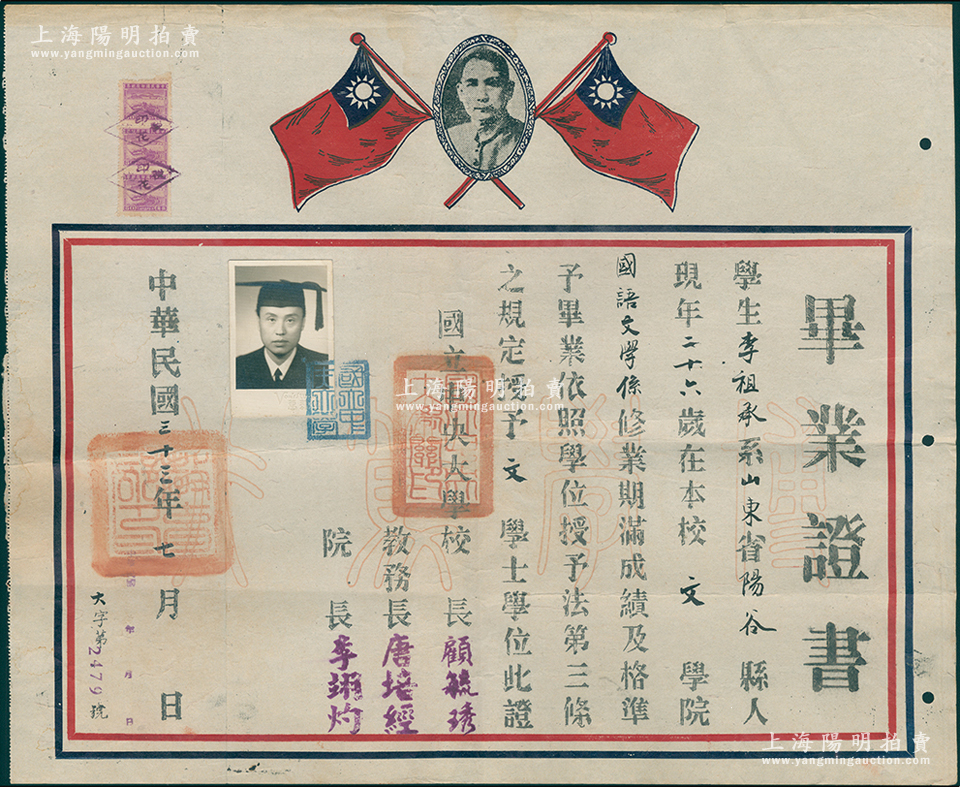 上海陽明拍賣
www.yangmingauction.com
畢業證書
學生李祖承系山東省陽谷縣人
現年二十六歲在本校文學院
國語文學係修業期滿成績及格準
予畢業依照學位授予法第三條
之規定授予文學士學位此證
國立中央大學校長顧毓琇
教務長唐培經
院長李翊灼
中華民國三十三年七月日
大字第2479號
年月日
印花
印花
上海陽明拍賣
www.yangmingauction.com
上海陽明拍賣
www.yangmingauction.com